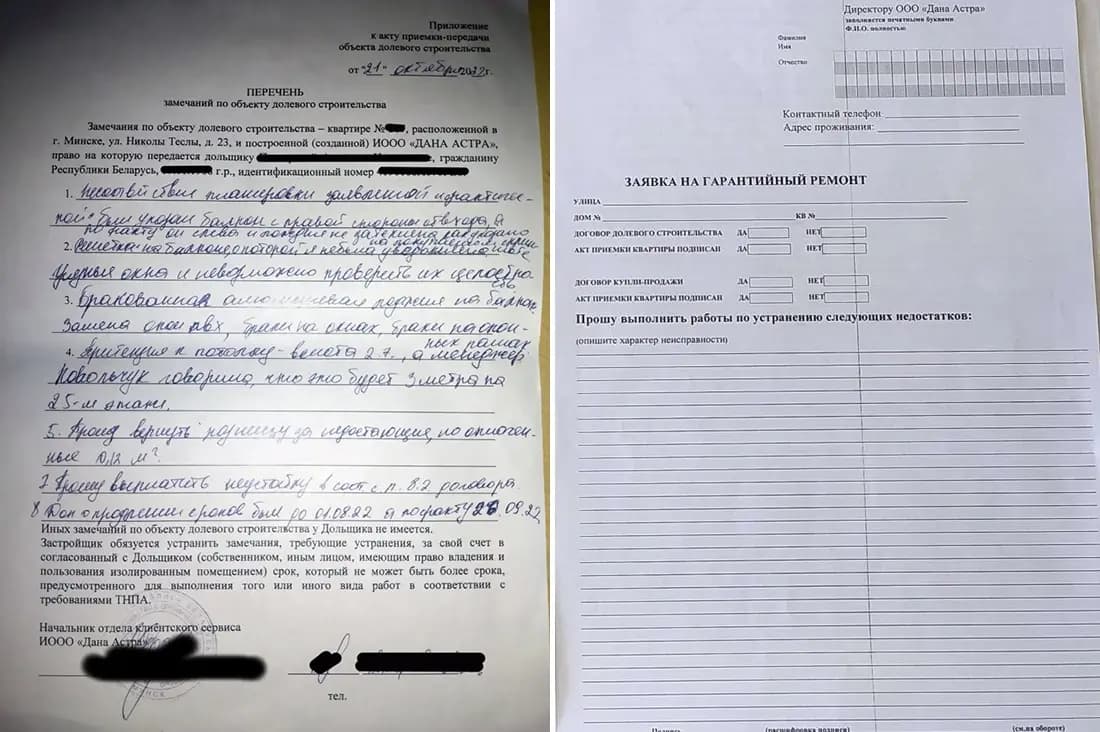 Приложение
к акту приемки-передачи
объекта долевого строительства
от "21" октября 2022г.
ПЕРЕЧЕНЬ
замечаний по объекту долевого строительства
Замечания по объекту долевого строительства – квартире №, расположенной в
г. Минске, ул. Николы Теслы, д. 23, и построенной (созданной) ИООО «ДАНА АСТРА»,
право на которую передается дольщику , гражданину
Республики Беларусь, г.р., идентификационный номер
1. планировки заявленной
был указан балкон с правой стороны от входа, а
по факту он слева и лоджия не
2. Решетка на балконе, о которой я не была уведомлена
окна и невозможно проверить их
3. Бракованная алюминиевая лоджия на балконе.
Замена окон пвх, браки на окнах, браки на окон-
ных рамах
4. Претензия к потолку - высота 2.7, а менеджер
Ковальчук говорила, что это будет 3 метра на
25-м этаже.
5. Прошу вернуть разницу за недостающие, но оплачен-
ные 0,12 м².
7 Прошу выплатить неустойку в соот. с п. 8.2. договора.
8 Доп о продлении сроков был до 01.08.22 а по факту 26.09.22
Иных замечаний по объекту долевого строительства у Дольщика не имеется.
Застройщик обязуется устранить замечания, требующие устранения, за свой счет в
согласованный с Дольщиком (собственником, иным лицом, имеющим право владения и
пользования изолированным помещением) срок, который не может быть более срока,
предусмотренного для выполнения того или иного вида работ в соответствии с
требованиями ТНПА.
Начальник отдела клиентского сервиса
ИООО «Дана Астра»
тел.
Директору ООО «Дана Астра»
заполняется печатными буквами
Ф.И.О. полностью
Фамилия
Имя
Отчество
Контактный телефон
Адрес проживания:
ЗАЯВКА НА ГАРАНТИЙНЫЙ РЕМОНТ
УЛИЦА
ДОМ № КВ №
ДОГОВОР ДОЛЕВОГО СТРОИТЕЛЬСТВА ДА НЕТ
АКТ ПРИЕМКИ КВАРТИРЫ ПОДПИСАН ДА НЕТ
ДОГОВОР КУПЛИ-ПРОДАЖИ ДА НЕТ
АКТ ПРИЕМКИ КВАРТИРЫ ПОДПИСАН ДА НЕТ
Прошу выполнить работы по устранению следующих недостатков:
(опишите характер неисправности)
Подпись (расшифровка подписи) (см.на обороте)